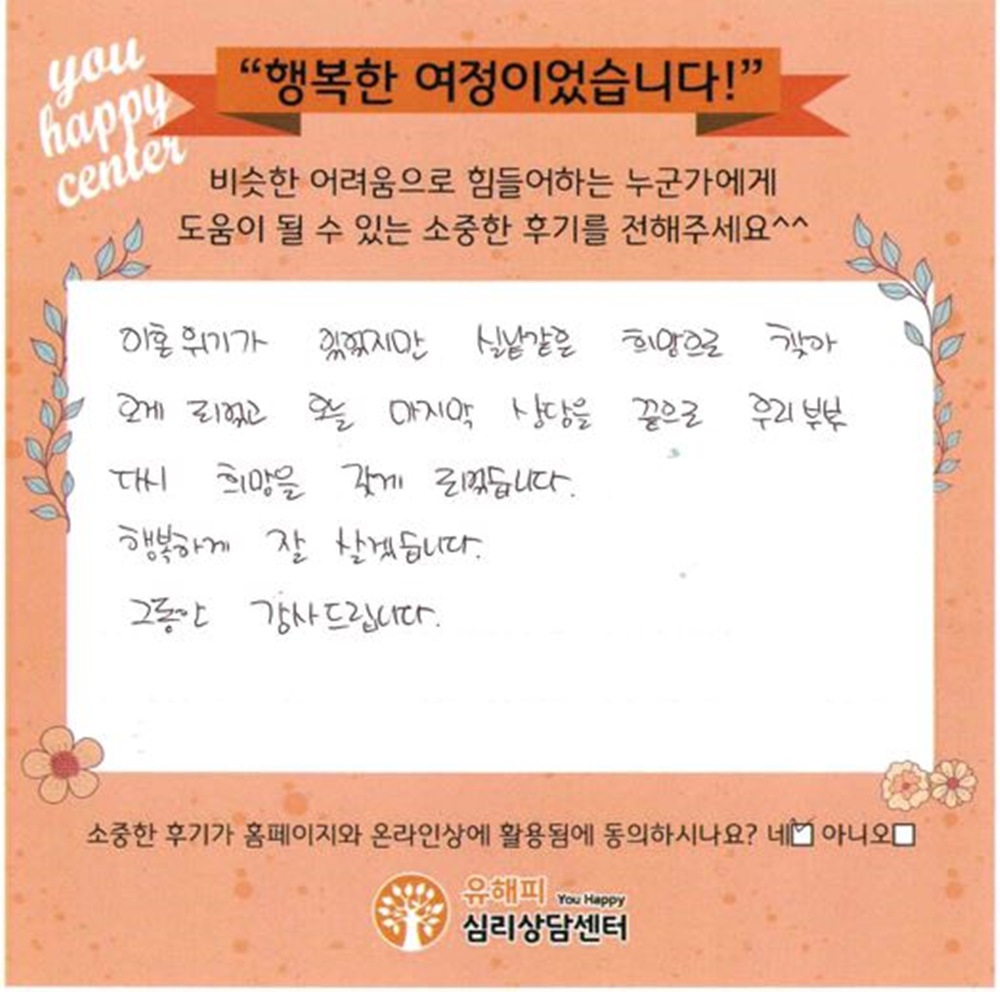 you
happy
center
“행복한 여정이었습니다!”
비슷한 어려움으로 힘들어하는 누군가에게
도움이 될 수 있는 소중한 후기를 전해주세요^^
이혼 위기가 있었지만 실낱같은 희망으로 찾아
오게 되었고 오늘 마지막 상담을 끝으로 우리 부부
다시 희망을 갖게 되었습니다.
행복하게 잘 살겠습니다.
그동안 감사드립니다.
소중한 후기가 홈페이지와 온라인상에 활용됨에 동의하시나요? 네☑ 아니오☐
유해피 You Happy
심리상담센터